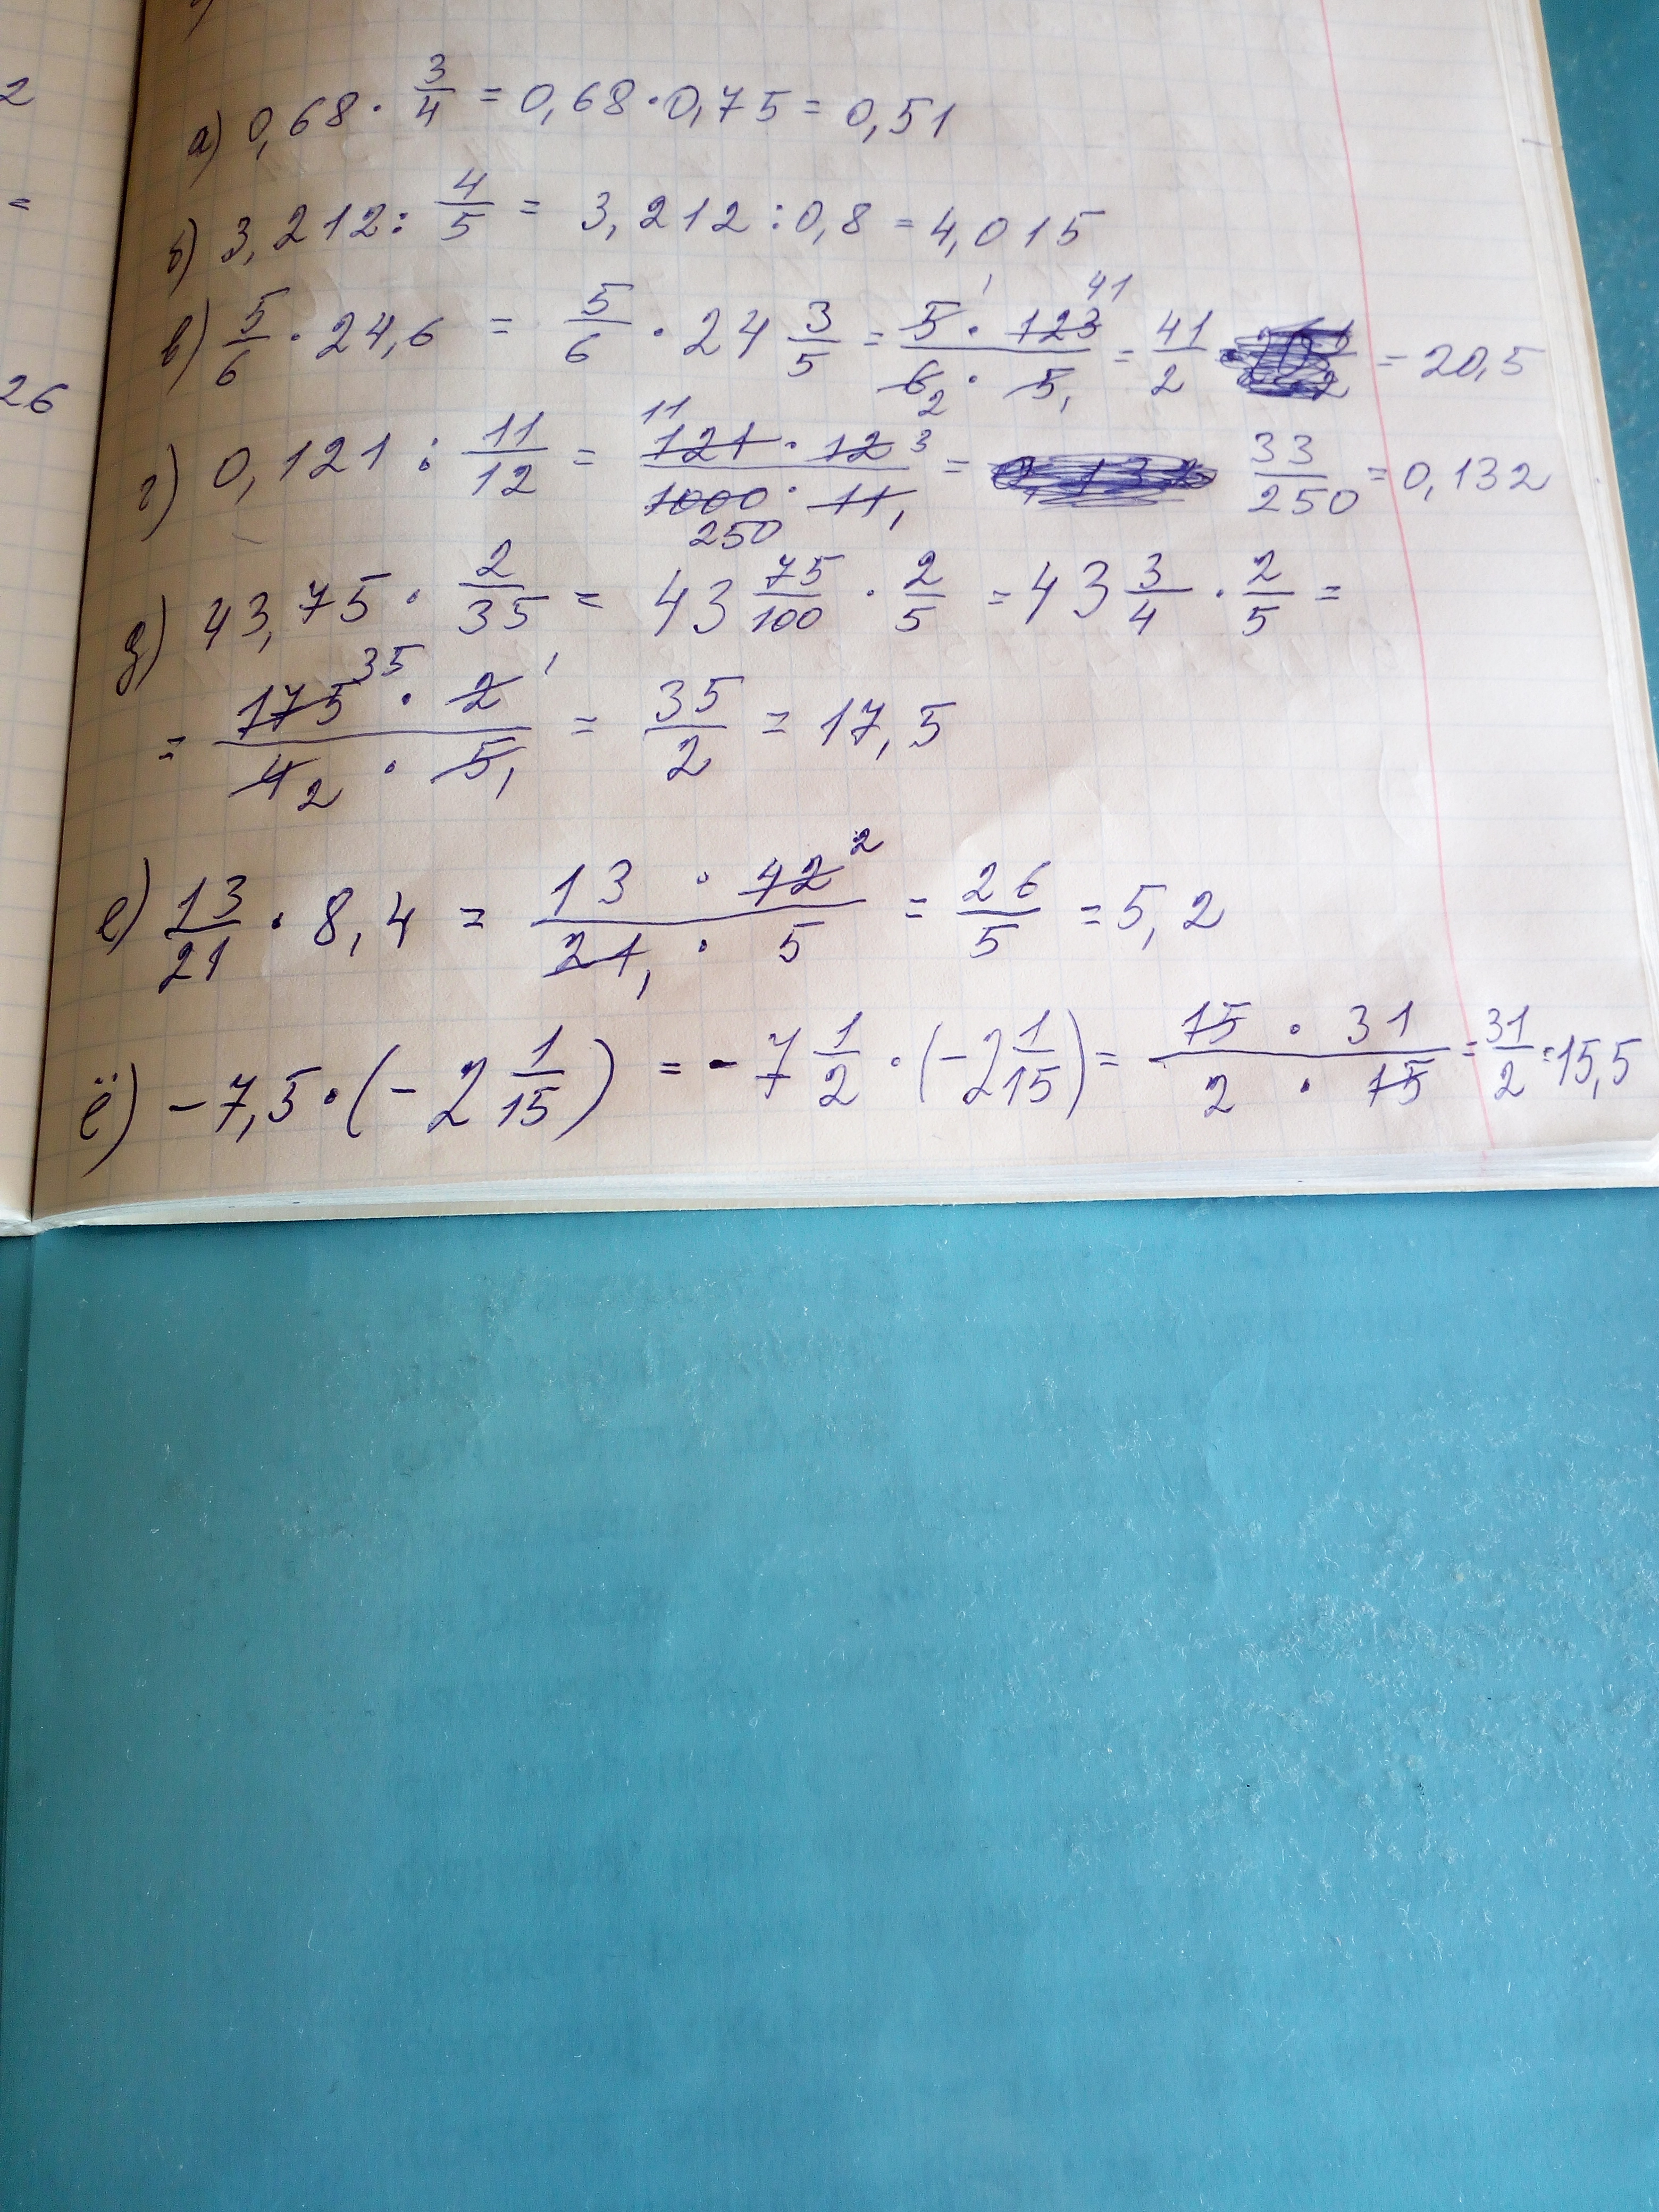 2
=
26
а) 0,68 · 3/4 = 0,68 · 0,75 = 0,51
б) 3,212 : 4/5 = 3,212 : 0,8 = 4,015
в) 5/6 · 24,6 = 5/6 · 24 3/5 = 5 1 · 123 41 / 6 2 · 5 1 = 41/2 = 20,5
г) 0,121 : 11/12 = 121 11 · 12 3 / 1000 250 · 11 1 = 33/250 = 0,132
д) 43,75 · 2/35 = 43 75/100 · 2/5 = 43 3/4 · 2/5 =
= 175 35 · 2 1 / 4 2 · 5 1 = 35/2 = 17,5
е) 13/21 · 8,4 = 13 · 42 2 / 21 1 · 5 = 26/5 = 5,2
ё) -7,5 · (-2 1/15) = -7 1/2 · (-2 1/15) = 15 · 31 / 2 · 15 = 31/2 = 15,5